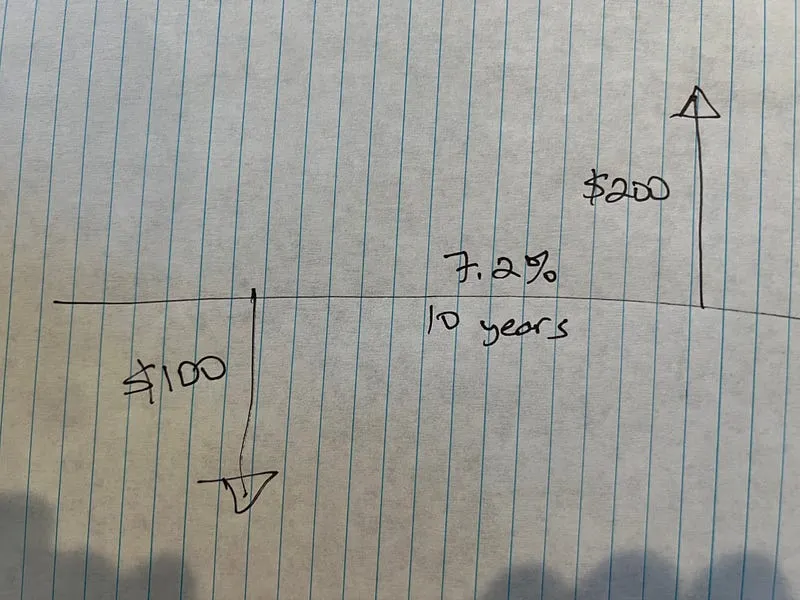 $200
7.2%
10 years
$100